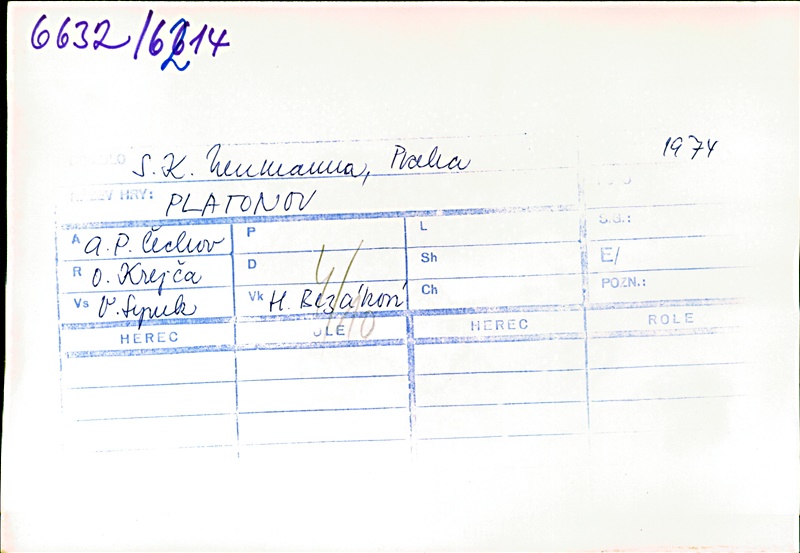 6632/6214
S. K. Neumanna, Praha 1974
NÁZEV HRY: PLATONOV
A A. P. Čechov P L S.G.:
R O. Krejča D Sh E/
Vs V. Sýpek Vk H. Bezáková Ch POZN.:
HEREC ROLE HEREC ROLE